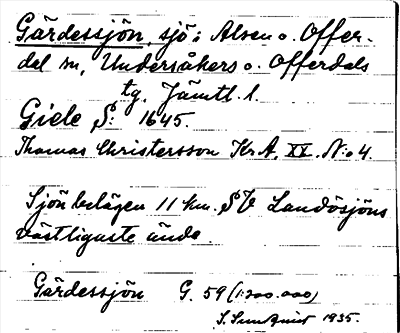 Gärdessjön, sjö i Alsen o. Offer-
dal sn, Undersåkers o. Offerdals
tg. Jämtl. l.
Giele S: 1645.
Thomas Christersson Kr.A. XX. No 4.
Sjön belägen 11 km. SV Landösjöns
västligaste ända.
Gärdessjön G. 59 (1:200.000)
S. Sundqvist 1935.